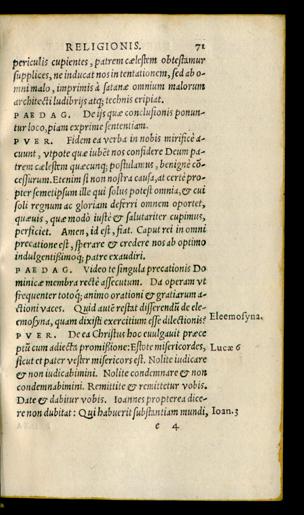 RELIGIONIS. 71
periculis cupientes, patrem cælestem obtestamur
supplices, ne inducat nos in tentationem, sed ab o-
mni malo, imprimis à satanæ omnium malorum
architecti ludibrijs atq; technis eripiat.
PAEDAG. De ijs quæ conclusionis ponun-
tur loco, piam exprime sententiam.
PVER. Fidem ea verba in nobis mirificè a-
cuunt, vtpote quæ iubēt nos confidere Deum pa-
trem cælestem quæcunq; postulamus, benignè cō-
cessurum. Etenim si non nostra causa, at certè pro-
pter semetipsum ille qui solus potest omnia, & cui
soli regnum ac gloriam deferri omnem oportet,
quæuis, quæ modò iustè & salutariter cupimus,
perficiet. Amen, id est, fiat. Caput rei in omni
precatione est, sperare & credere nos ab optimo
indulgentißimoq; patre exaudiri.
PAEDAG. Video te singula precationis Do
minicæ membra rectè assecutum. Da operam vt
frequenter totoq; animo orationi & gratiarum a-
ctioni vaces. Quid autē restat disserendū de ele-
emosyna, quam dixisti exercitium esse dilectionis?
Eleemosyna.
PVER. De ea Christus hoc euulgauit præce
ptū cum adiecta promißione: Estote misericordes,
Lucæ 6
sicut et pater vester misericors est. Nolite iudicare
& non iudicabimini. Nolite condemnare & non
condemnabimini. Remittite & remittetur vobis.
Date & dabitur vobis. Ioannes propterea dice-
re non dubitat: Qui habuerit substantiam mundi,
Ioan. 3
e 4